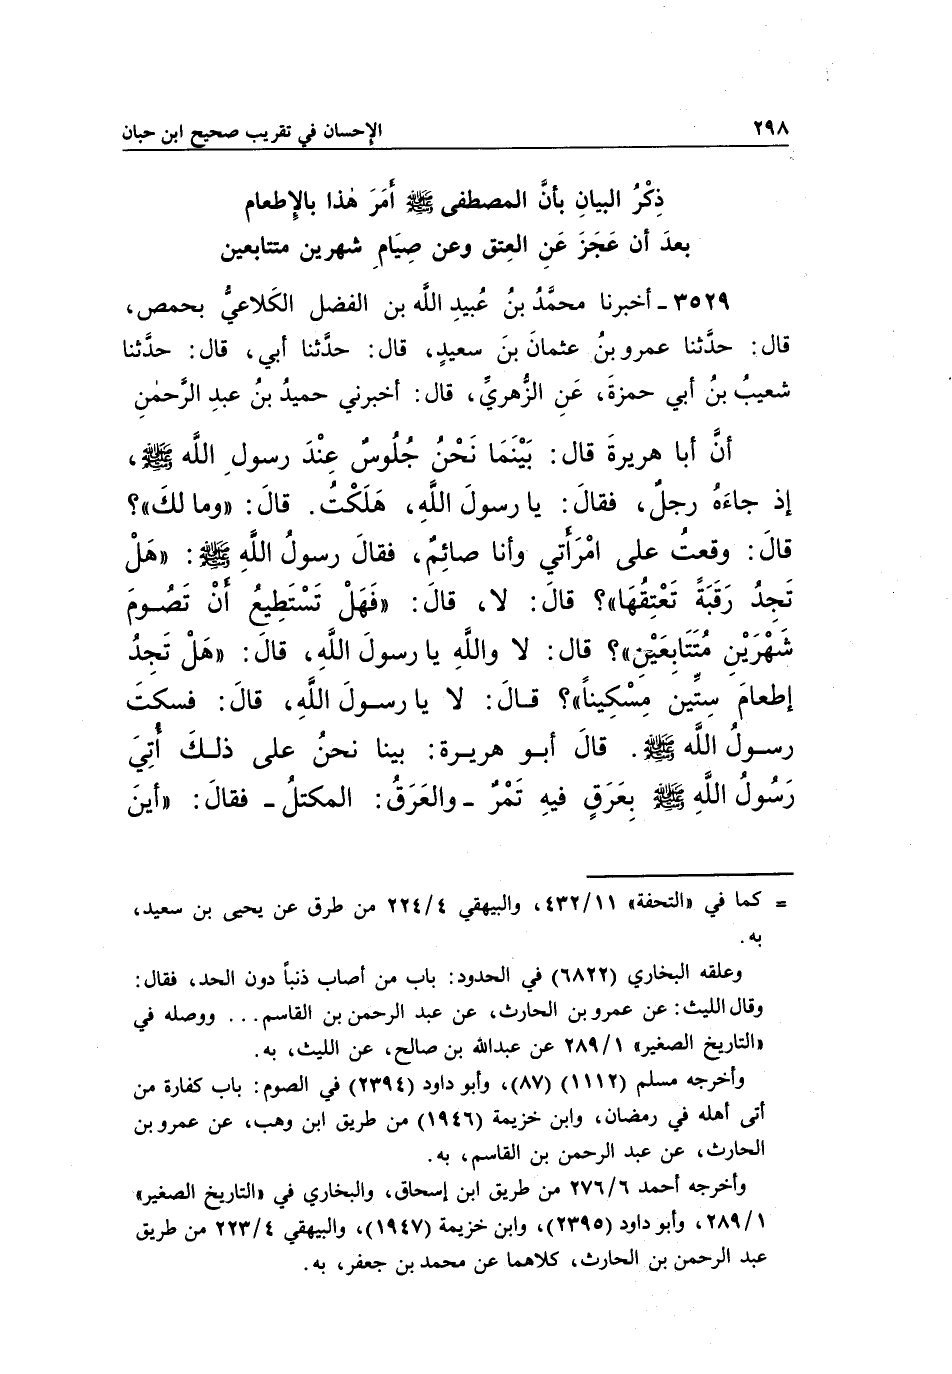 ٢٩٨ الإحسان في تقريب صحيح ابن حبان
ذِكْرُ البيانِ بأنَّ المصطفى ﷺ أَمَرَ هٰذا بالإِطعام
بعدَ أن عَجَزَ عَنِ العِتق وعن صِيَامِ شهرين متتابعين
٣٥٢٩ ـ أخبرنا محمَّدُ بنُ عُبيدِ اللَّه بن الفضل الكَلاعيُّ بحمص،
قال: حدَّثنا عمرو بنُ عثمانَ بنَ سعيدٍ، قال: حدَّثنا أبي، قال: حدَّثنا
شعيبُ بنُ أبي حمزةَ، عَنِ الزُّهريِّ، قال: أخبرني حميدُ بنُ عبدِ الرَّحمٰنِ
أنَّ أبا هريرةَ قال: بَيْنَمَا نَحْنُ جُلُوسٌ عِنْدَ رسولِ اللَّه ﷺ،
إذ جاءَهُ رجلٌ، فقالَ: يا رسولَ اللَّهِ، هَلَكْتُ. قالَ: «وما لكَ»؟
قالَ: وقعتُ على امْرَأَتي وأنا صائِمٌ، فقالَ رسولُ اللَّهِ ﷺ: «هَلْ
تَجِدُ رَقَبَةً تَعْتِقُهَا»؟ قالَ: لا، قالَ: «فَهَلْ تَسْتَطِيعُ أَنْ تَصُـومَ
شَهْرَيْنِ مُتَتَابِعَيْنِ»؟ قال: لا واللَّهِ يا رسولَ اللَّهِ، قالَ: «هَلْ تَجِدُ
إطعامَ سِتِّين مِسْكِيناً»؟ قـالَ: لا يا رسـولَ اللَّهِ، قالَ: فسكتَ
رسـولُ اللَّه ﷺ. قالَ أبـو هريـرة: بينا نحنُ على ذلـكَ أُتِيَ
رَسُولُ اللَّهِ ﷺ بِعَرَقٍ فيهِ تَمْرٌ ـ والعَرَقُ: المكتلُ ـ فقالَ: «أينَ
= كما في «التحفة» ٤٣٢/١١، والبيهقي ٢٢٤/٤ من طرق عن يحيى بن سعيد،
به.
وعلقه البخاري (٦٨٢٢) في الحدود: باب من أصاب ذنباً دون الحد، فقال:
وقال الليث: عن عمرو بن الحارث، عن عبد الرحمن بن القاسم... ووصله في
«التاريخ الصغير» ٢٨٩/١ عن عبدالله بن صالح، عن الليث، به.
وأخرجه مسلم (١١١٢) (٨٧)، وأبو داود (٢٣٩٤) في الصوم: باب كفارة من
أتى أهله في رمضان، وابن خزيمة (١٩٤٦) من طريق ابن وهب، عن عمرو بن
الحارث، عن عبد الرحمن بن القاسم، به.
وأخرجه أحمد ٢٧٦/٦ من طريق ابن إسحاق، والبخاري في «التاريخ الصغير»
٢٨٩/١، وأبو داود (٢٣٩٥)، وابن خزيمة (١٩٤٧)، والبيهقي ٢٢٣/٤ من طريق
عبد الرحمن بن الحارث، كلاهما عن محمد بن جعفر، به.